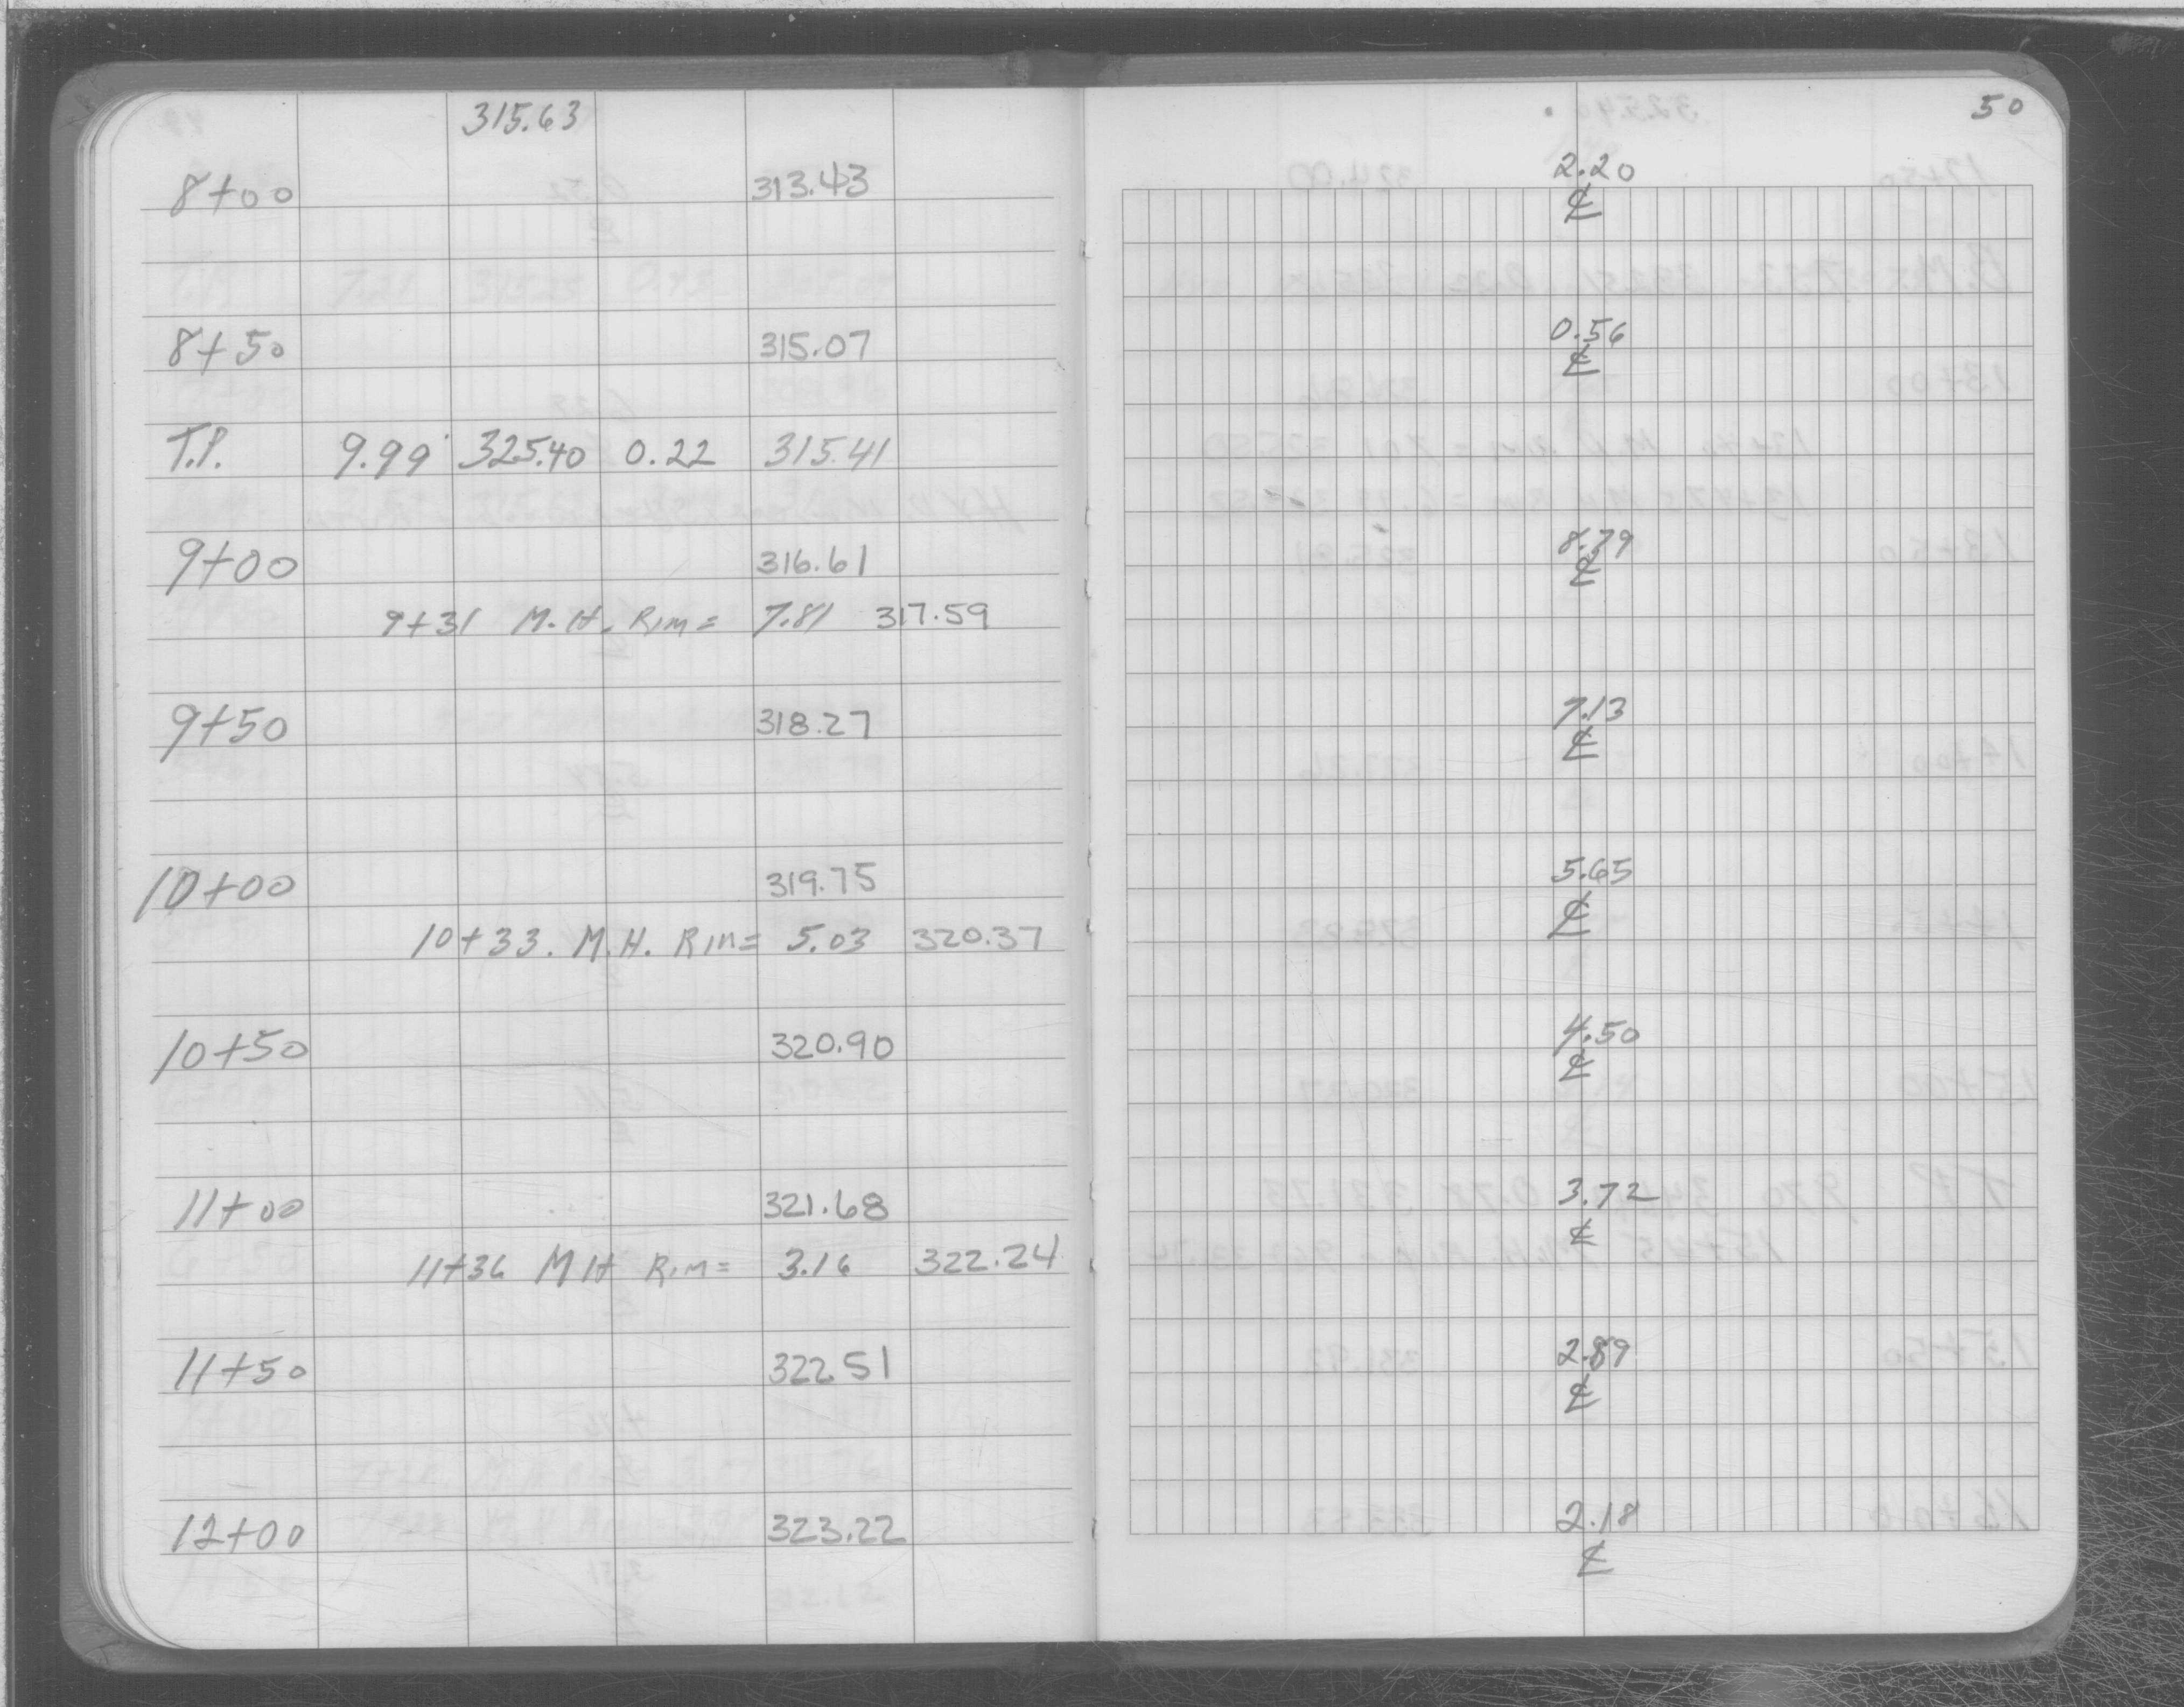 315.63
50
8+00 313.43 2.20
℄
8+50 315.07 0.56
℄
T.P. 9.99 325.40 0.22 315.41
9+00 316.61 8.79
℄
9+31 M.H. Rim = 7.81 317.59
9+50 318.27 7.13
℄
10+00 319.75 5.65
℄
10+33. M.H. Rim = 5.03 320.37
10+50 320.90 4.50
℄
11+00 321.68 3.72
℄
11+36 MH Rim = 3.16 322.24
11+50 322.51 2.89
℄
12+00 323.22 2.18
℄